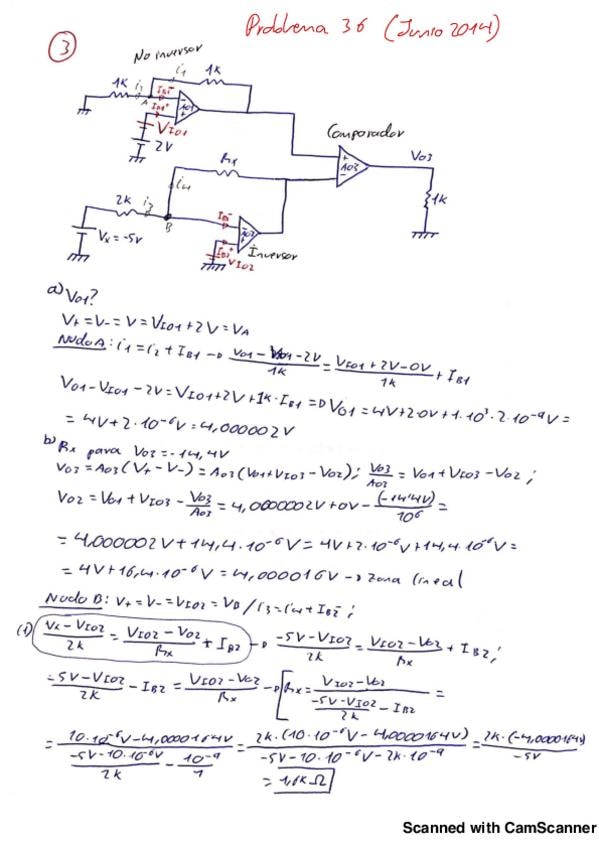 Problema 36 (Junio 2014)
3
No inversor
1K
i2
A
i1
1K
IB1-
IB1+
AO1
VIO1
2V
Comparador
AO3
VO3
1K
Rx
i4
2K
i3
B
Vx = -5V
IB2-
IB2+
AO2
VIO2
Inversor
a) VO1?
V+ = V- = V = VIO1 + 2V = VA
Nudo A: i1 = i2 + IB1 → VO1 - VIO1 - 2V / 1K = VIO1 + 2V - 0V / 1K + IB1
VO1 - VIO1 - 2V = VIO1 + 2V + 1K · IB1 ⇒ VO1 = 4V + 2·0V + 1·10³·2·10⁻⁹V =
= 4V + 2·10⁻⁶V = 4,000002V
b) Rx para VO3 = -14,4V
VO3 = AO3 (V+ - V-) = AO3 (VO1 + VIO3 - VO2); VO3 / AO3 = VO1 + VIO3 - VO2;
VO2 = VO1 + VIO3 - VO3 / AO3 = 4,0000002V + 0V - (-14,4V) / 10⁶ =
= 4,000002V + 14,4·10⁻⁶V = 4V + 2·10⁻⁶V + 14,4·10⁻⁶V =
= 4V + 16,4·10⁻⁶V = 4,000016V → Zona lineal
Nudo B: V+ = V- = VIO2 = VB / i3 = i4 + IB2-;
(1) Vx - VIO2 / 2K = VIO2 - VO2 / Rx + IB2 → -5V - VIO2 / 2K = VIO2 - VO2 / Rx + IB2;
-5V - VIO2 / 2K - IB2 = VIO2 - VO2 / Rx → Rx = VIO2 - VO2 / -5V - VIO2 / 2K - IB2 =
= 10·10⁻⁶V - 4,0000164V / -5V - 10·10⁻⁶V / 2K - 10⁻⁹ / 1 = 2K · (10·10⁻⁶V - 4,0000164V) / -5V - 10·10⁻⁶V - 2K·10⁻⁹ = 2K·(-4,0000164V) / -5V
= 1,6K Ω
Scanned with CamScanner